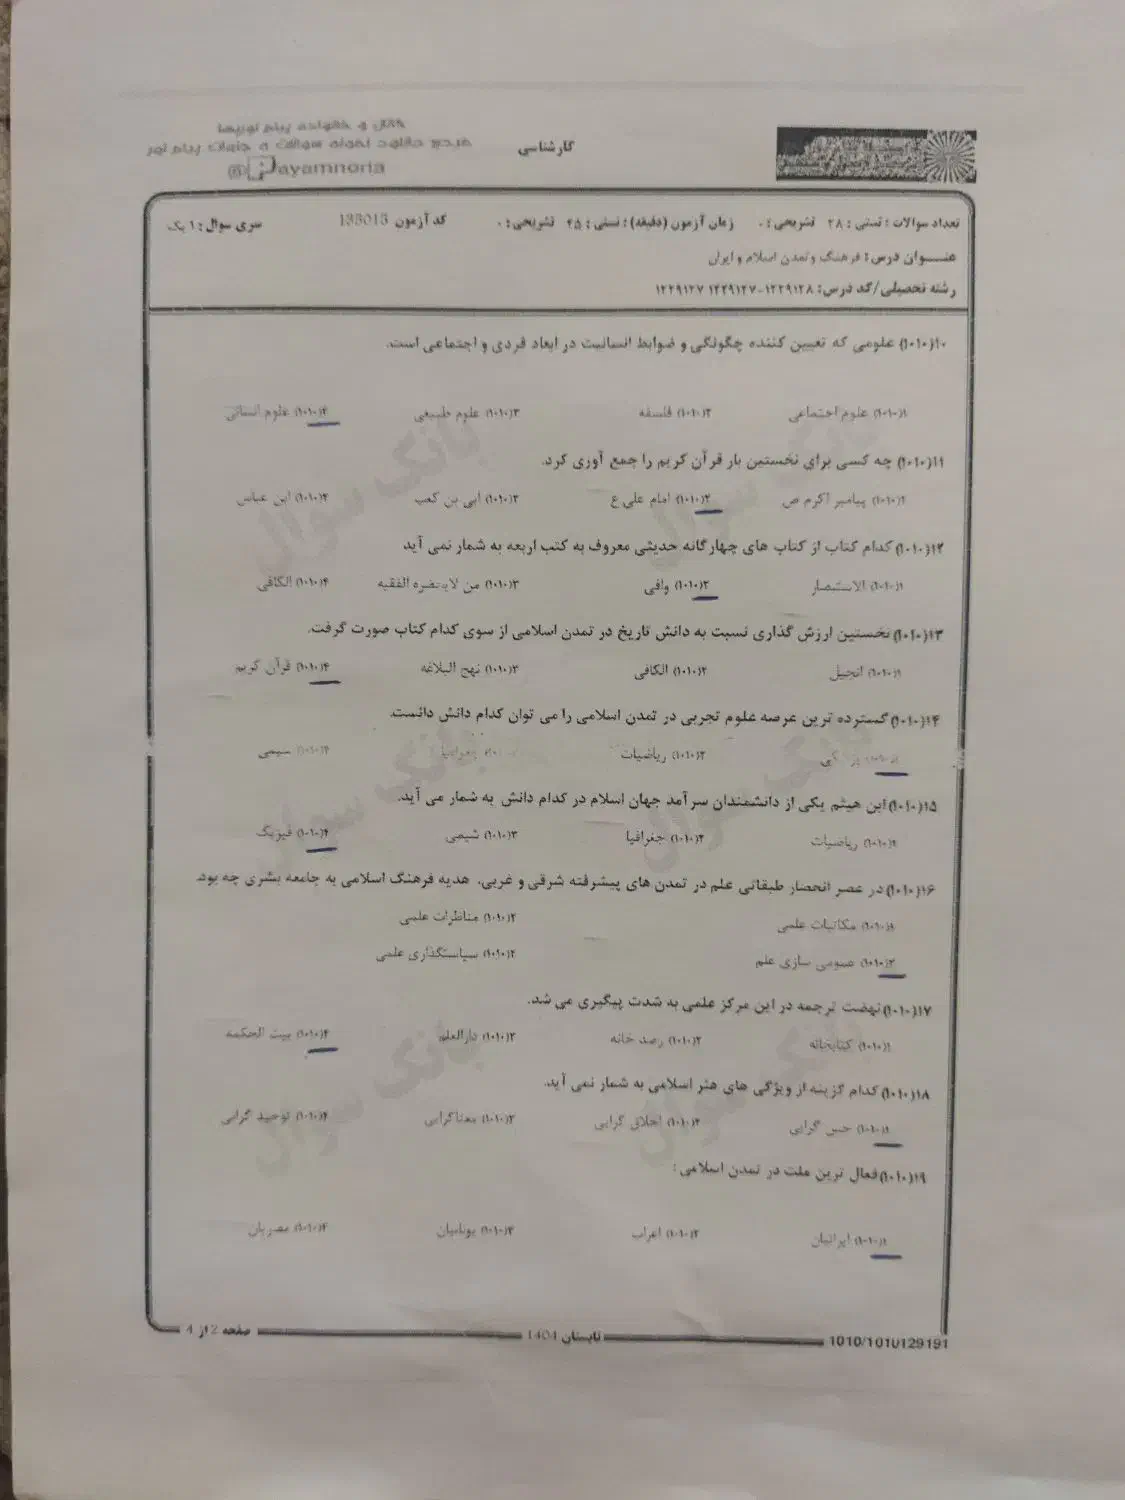 کانال و خانواده پیام نوریها
مرجع دانلود نمونه سوالات و جزوات پیام نور
@Payamnoria
کارشناسی
تعداد سوالات : تستی : ۲۸ تشریحی : ۰ زمان آزمون (دقیقه) : تستی : ۴۵ تشریحی : ۰ کد آزمون 133013 سری سوال : ۱ یک
عنـــوان درس : فرهنگ و تمدن اسلام و ایران
رشته تحصیلی/کد درس : ۱۲۲۹۱۲۸-۱۲۲۹۱۲۷ ۱۲۲۹۱۲۷
۱۰(۱۰۱۰) علومی که تعیین کننده چگونگی و ضوابط انسانیت در ابعاد فردی و اجتماعی است.
۱(۱۰۱۰) علوم اجتماعی ۲(۱۰۱۰) فلسفه ۳(۱۰۱۰) علوم طبیعی ۴(۱۰۱۰) علوم انسانی
۱۱(۱۰۱۰) چه کسی برای نخستین بار قرآن کریم را جمع آوری کرد.
۱(۱۰۱۰) پیامبر اکرم ص ۲(۱۰۱۰) امام علی ع ۳(۱۰۱۰) ابی بن کعب ۴(۱۰۱۰) ابن عباس
۱۲(۱۰۱۰) کدام کتاب از کتاب های چهارگانه حدیثی معروف به کتب اربعه به شمار نمی آید
۱(۱۰۱۰) الاستبصار ۲(۱۰۱۰) وافی ۳(۱۰۱۰) من لایحضره الفقیه ۴(۱۰۱۰) الکافی
۱۳(۱۰۱۰) نخستین ارزش گذاری نسبت به دانش تاریخ در تمدن اسلامی از سوی کدام کتاب صورت گرفت.
۱(۱۰۱۰) انجیل ۲(۱۰۱۰) الکافی ۳(۱۰۱۰) نهج البلاغه ۴(۱۰۱۰) قرآن کریم
۱۴(۱۰۱۰) گسترده ترین عرصه علوم تجربی در تمدن اسلامی را می توان کدام دانش دانست.
۱(۱۰۱۰) ۲(۱۰۱۰) ریاضیات ۴(۱۰۱۰) شیمی
۱۵(۱۰۱۰) ابن هیثم یکی از دانشمندان سرآمد جهان اسلام در کدام دانش به شمار می آید.
۱(۱۰۱۰) ریاضیات ۲(۱۰۱۰) جغرافیا ۳(۱۰۱۰) شیمی ۴(۱۰۱۰) فیزیک
۱۶(۱۰۱۰) در عصر انحصار طبقاتی علم در تمدن های پیشرفته شرقی و غربی، هدیه فرهنگ اسلامی به جامعه بشری چه بود.
۱(۱۰۱۰) مکاتبات علمی ۲(۱۰۱۰) مناظرات علمی
۳(۱۰۱۰) عمومی سازی علم ۴(۱۰۱۰) سیاستگذاری علمی
۱۷(۱۰۱۰) نهضت ترجمه در این مرکز علمی به شدت پیگیری می شد.
۱(۱۰۱۰) کتابخانه ۲(۱۰۱۰) رصد خانه ۳(۱۰۱۰) دارالعلم ۴(۱۰۱۰) بیت الحکمه
۱۸(۱۰۱۰) کدام گزینه از ویژگی های هنر اسلامی به شمار نمی آید.
۱(۱۰۱۰) حس گرایی ۲(۱۰۱۰) اخلاق گرایی ۳(۱۰۱۰) معناگرایی ۴(۱۰۱۰) توحید گرایی
۱۹(۱۰۱۰) فعال ترین ملت در تمدن اسلامی :
۱(۱۰۱۰) ایرانیان ۲(۱۰۱۰) اعراب ۳(۱۰۱۰) یونانیان ۴(۱۰۱۰) مصریان
1010/1010129191 تابستان 1404 صفحه 2 از 4
بانک سوال
بانک سوال
بانک سوال
بانک سوال
بانک سوال
بانک سوال